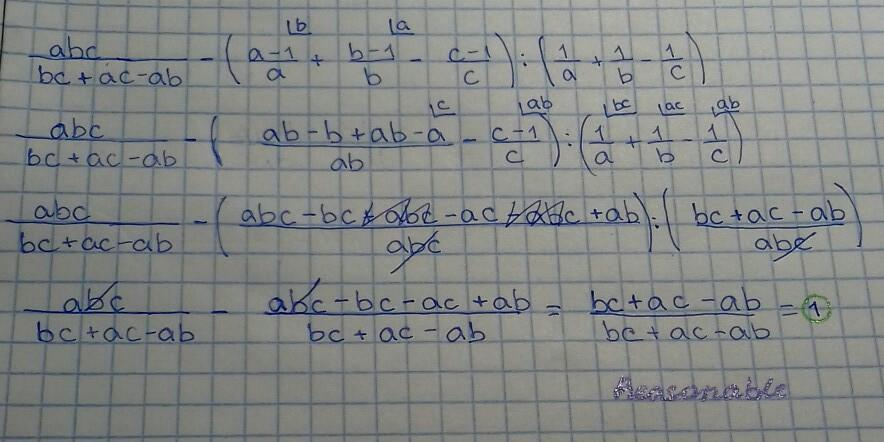 abc/(bc+ac-ab) - ((a-1)/a ⌊b + (b-1)/b ⌊a - (c-1)/c) : (1/a + 1/b - 1/c)
abc/(bc+ac-ab) - ((ab-b+ab-a)/ab ⌊c - (c-1)/c ⌊ab) : (1/a ⌊bc + 1/b ⌊ac - 1/c ⌊ab)
abc/(bc+ac-ab) - ((abc-bc+abc-ac-abc+ab)/abc) : ((bc+ac-ab)/abc)
abc/(bc+ac-ab) - (abc-bc-ac+ab)/(bc+ac-ab) = (bc+ac-ab)/(bc+ac-ab) = 1
Reasonable